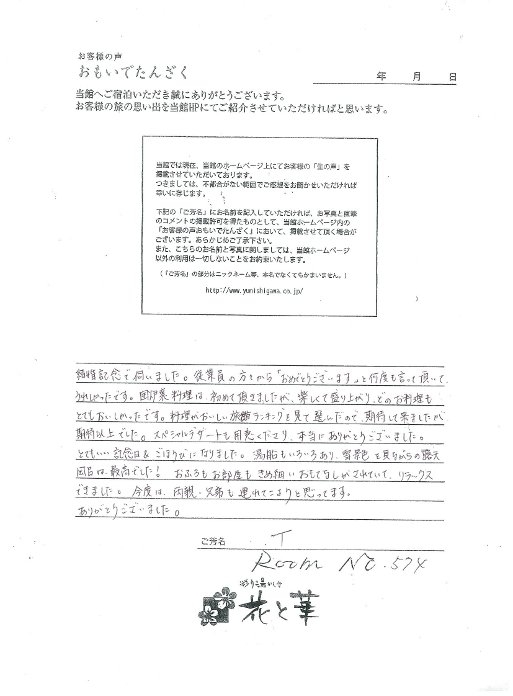 お客様の声
おもいでたんざく
年 月 日
当館へご宿泊いただき誠にありがとうございます。
お客様の旅の思い出を当館HPにてご紹介させていただければと思います。
当館では現在、当館のホームページ上にてお客様の「生の声」を
掲載させていただいております。
つきましては、不都合がない範囲でご感想をお聞かせいただければ
幸いに存じます。
下記の「ご芳名」にお名前を記入していただければ、お写真と直筆
のコメントの掲載許可を得たものとして、当館ホームページ内の
「お客様の声おもいでたんざく」において、掲載させて頂く場合が
ございます。あらかじめご了承下さい。
また、こちらのお名前と写真に関しましては、当館ホームページ
以外の利用は一切しないことをお約束いたします。
(「ご芳名」の部分はニックネーム等、本名でなくてもかまいません。)
http://www.yunishigawa.co.jp/
結婚記念で伺いました。従業員の方々から「おめでとうございます」と何度も言って頂いて、
うれしかったです。囲炉裏料理は初めて頂きましたが、楽しくて盛り上がり、どのお料理も
とてもおいしかったです。料理がおいしい旅館ランキングを見て選んだので、期待して来ましたが
期待以上でした。スペシャルデザートも用意くださり、本当にありがとうございました。
とてもいい記念日&ごほうびになりました。湯船もいろいろあり、雪景色を見ながらの露天
風呂は最高でした! おふろもお部屋もきめ細いおもてなしがされていて、リラックス
できました。今度は、両親・兄弟も連れてこようと思ってます。
ありがとうございました。
ご芳名 T
Room No.574
花と華